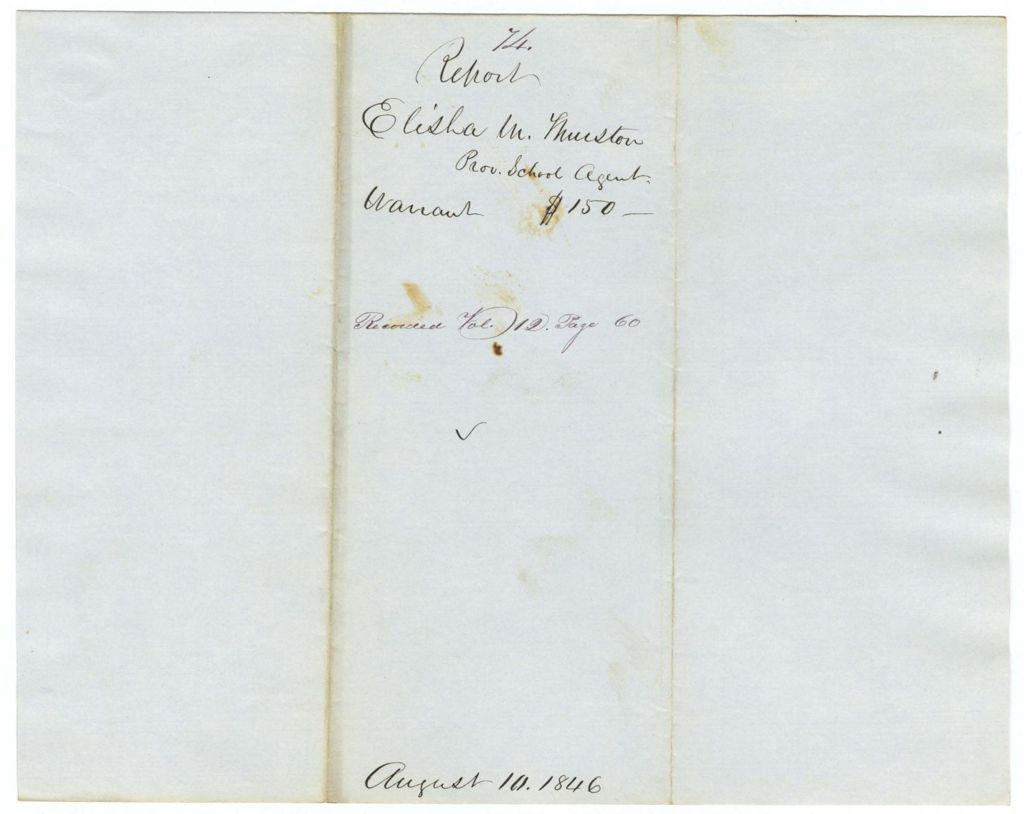 74.
Report
Elisha M. Thurston
Prov. School Agent.
Warrant $150 —
Recorded Vol. 12. Page 60
✓
August 10. 1846